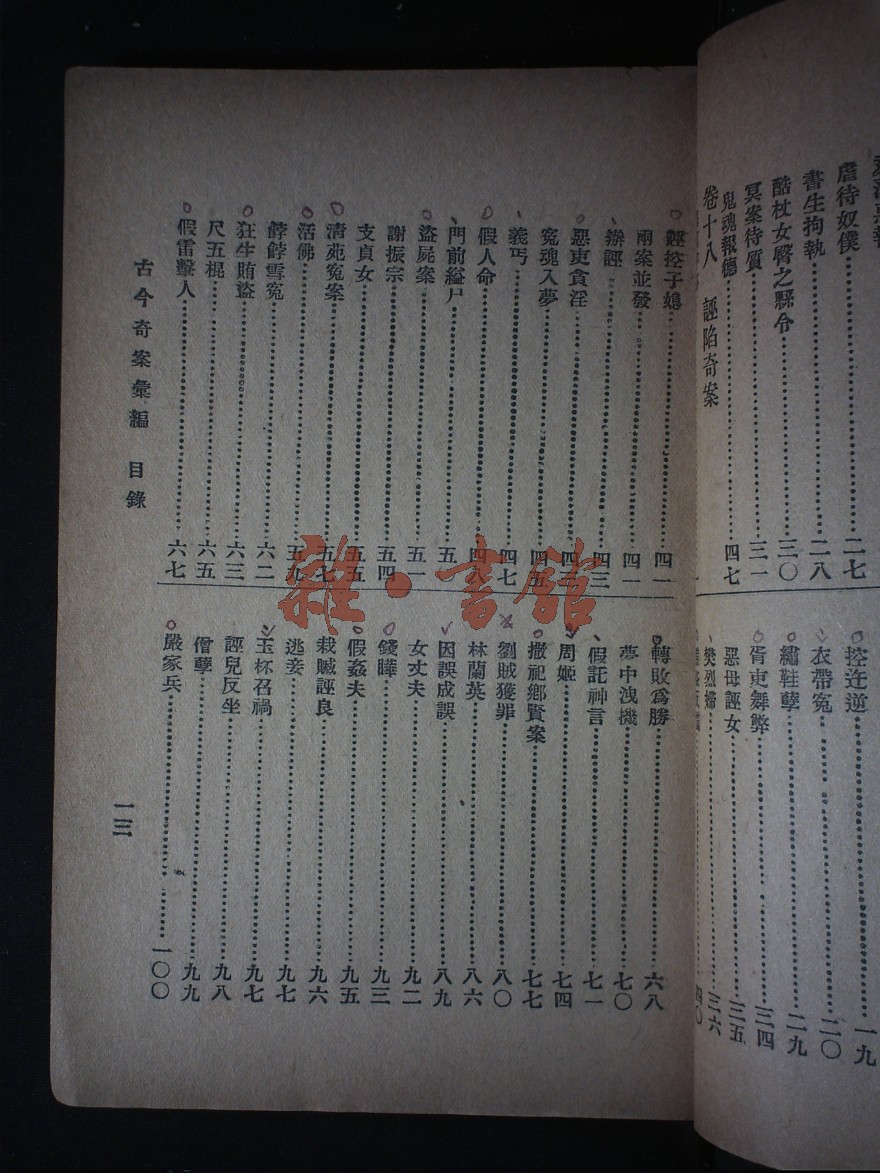 虐待奴僕……二七
書生拘執……二八
酷杖女臀之縣令……三〇
冥案待質……三一
鬼魂報德……四七
卷十八 誣陷奇案
控迕逆……一九
衣帶冤……二〇
繡鞋孽……二九
胥吏舞弊……三四
惡母誣女……三五
樊烈婦……三六
誣控子媳……四一
兩案並發……四一
辦誣……四三
惡吏貪淫……四四
冤魂入夢……四五
義丐……四七
假人命……四八
門前縊尸……五〇
盜屍案……五一
謝振宗……五四
支貞女……五五
清苑冤案……五七
活佛……五九
餑餑雪冤……六二
狂生賄盜……六三
尺五棍……六五
假雷擊人……六七
轉敗為勝……六八
夢中洩機……七〇
假託神言……七一
周姬……七四
撤祀鄉賢案……七七
劉賊獲罪……八〇
林蘭英……八六
因誤成誤……八九
女丈夫……九二
錢曄……九三
假姦夫……九五
栽贓誣良……九六
逃妾……九七
玉杯召禍……九七
誣兒反坐……九八
僧孽……九九
嚴家兵……一〇〇
古今奇案彙編 目錄
一三
雜·書館